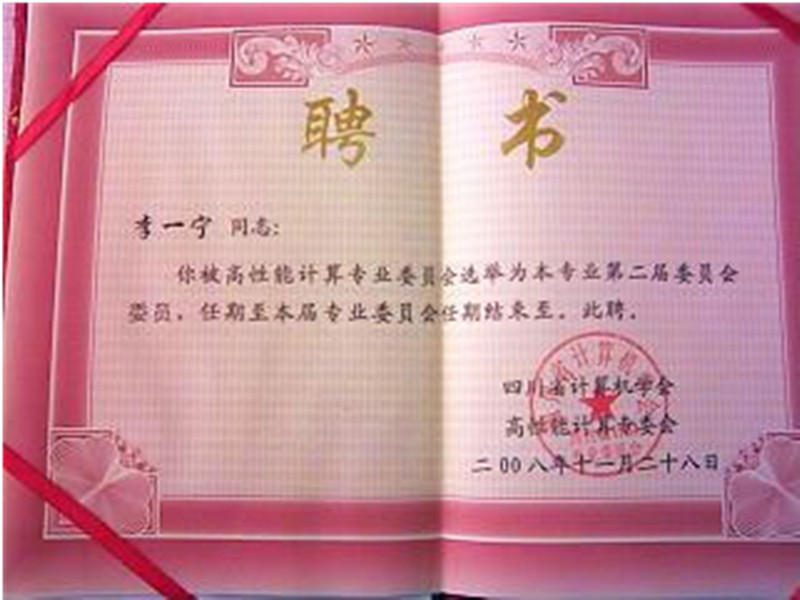 聘 书
李一宁 同志:
你被高性能计算专业委员会选举为本专业第二届委员会
委员。任期至本届专业委员会任期结束至。此聘。
四川省计算机学会
高性能计算专委会
二00八年十一月二十八日